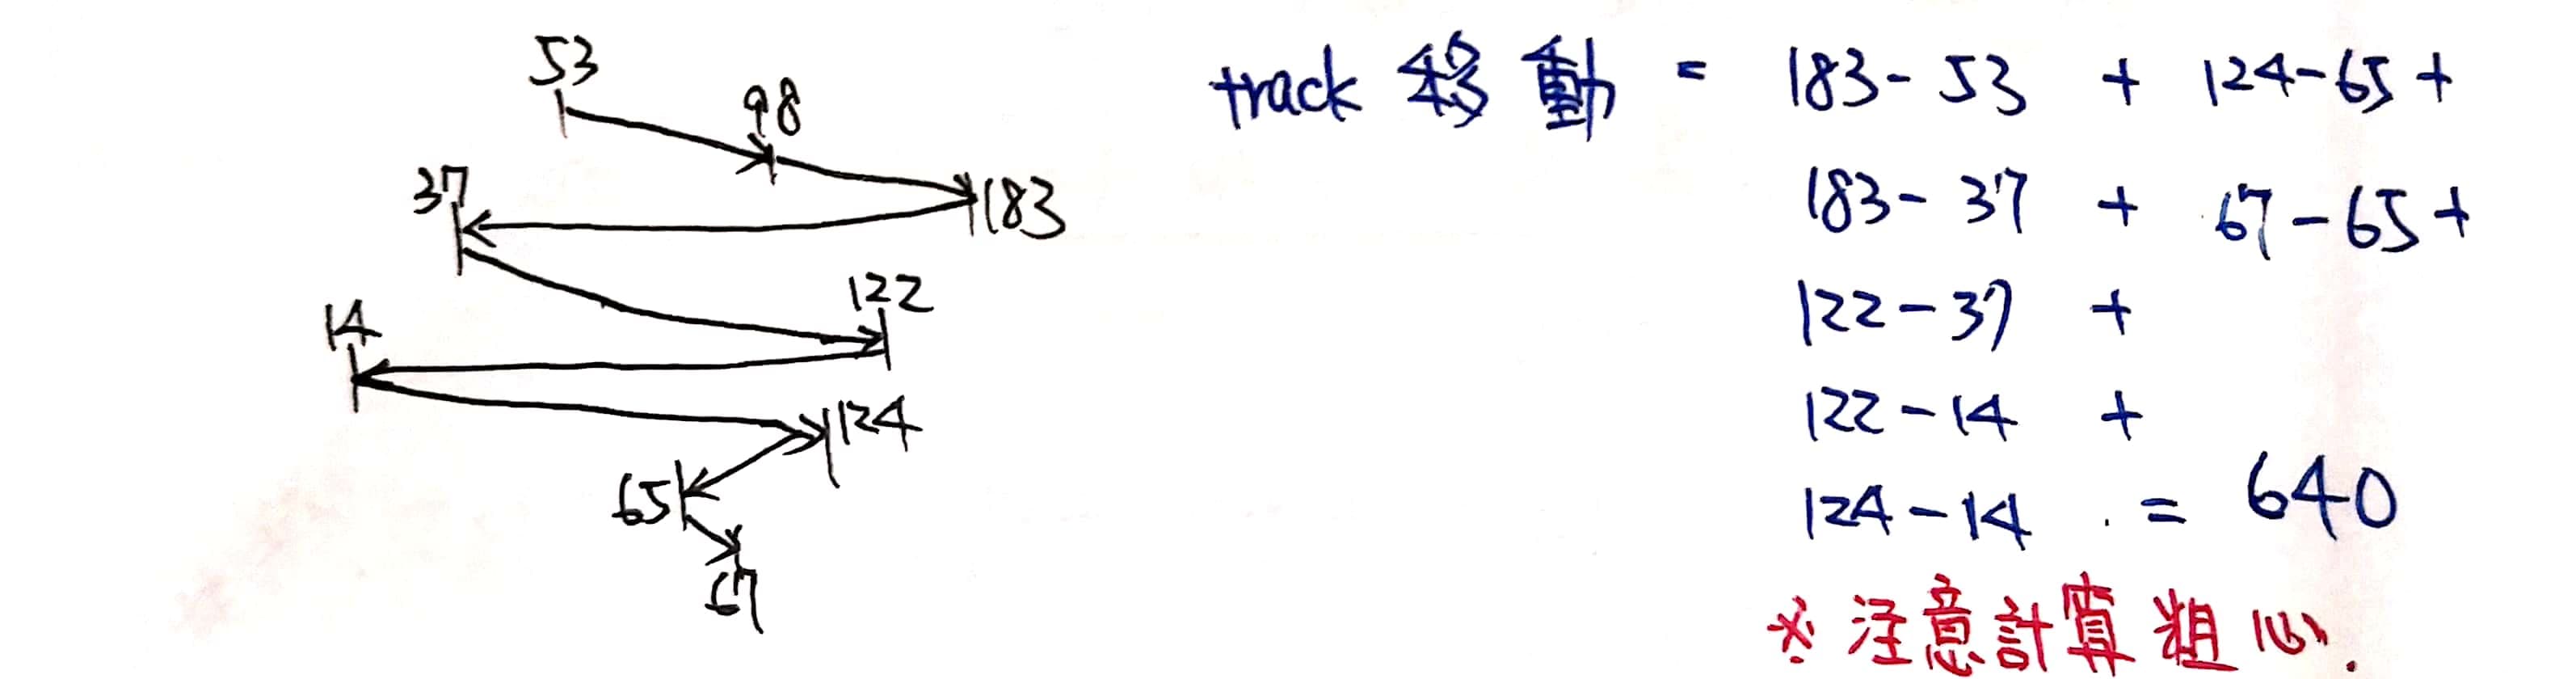 53
98
37
183
122
14
124
65
67
track 移動 = 183-53 + 124-65 +
183-37 + 67-65 +
122-37 +
122-14 +
124-14 = 640
※注意計算粗心.